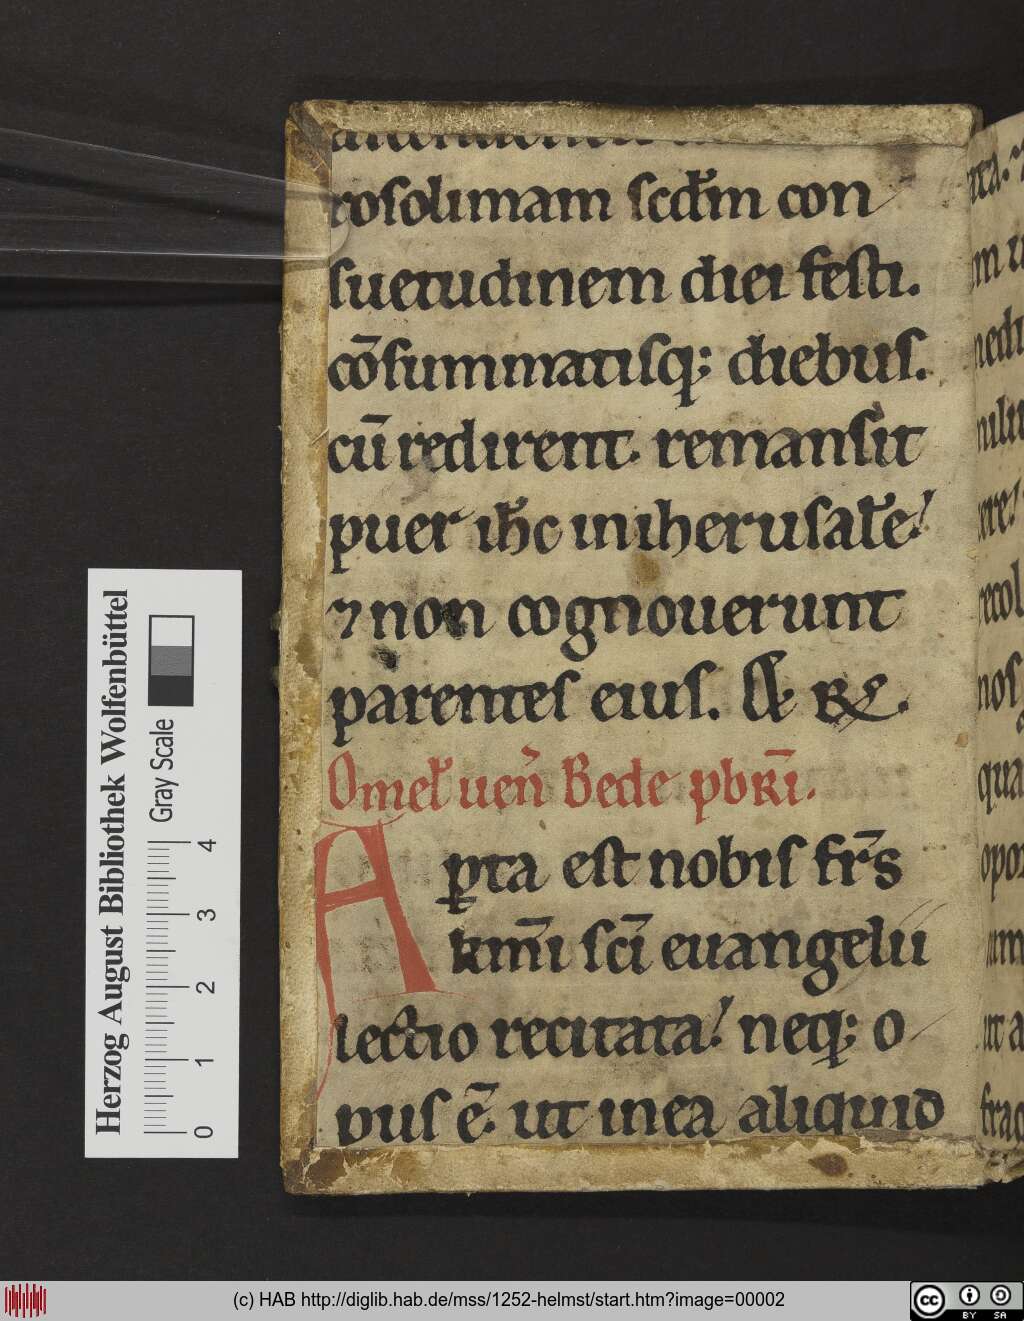 rosolimam scd̄m con
suetudinem diei festi.
cōsummatisq; diebus.
cū redirent. remansit
puer ihc̄ in iherusal̄e!
⁊ non cognouerunt
parentes eius. Et R̄⁊.
Omel̄ ueñ Bede pbr̄i.
Aꝑta est nobis fr̄s
km̄i sc̄i euangelii
lectio recitata! neq; o
pus ē. ut in ea aliquid
Herzog August Bibliothek Wolfenbüttel
Gray Scale
0 1 2 3 4
(c) HAB http://diglib.hab.de/mss/1252-helmst/start.htm?image=00002
cc BY SA